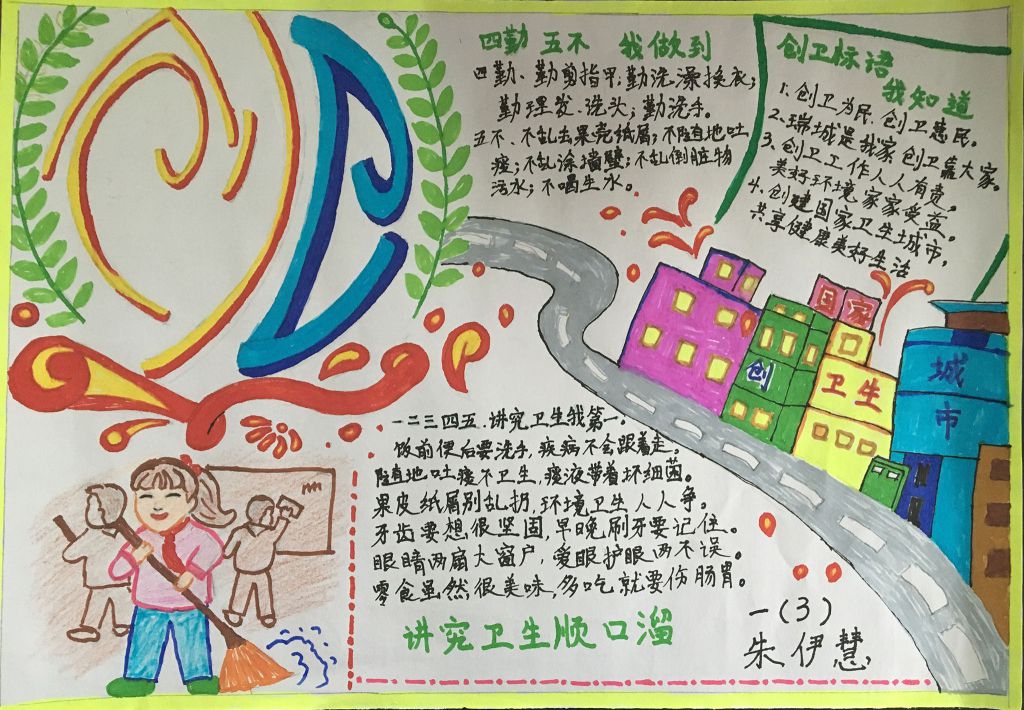 四勤 五不 我做到
四勤、勤剪指甲;勤洗澡换衣;
勤理发、洗头;勤洗手。
五不、不乱丢果壳纸屑;不随地吐
痰;不乱涂墙壁;不乱倒脏物
污水;不喝生水。
创卫标语
我知道
1、创卫为民、创卫惠民。
2、瑞城是我家,创卫靠大家。
3、创卫工作人人有责。
美好环境家家受益。
4、创建国家卫生城市,
共享健康美好生活
国家
创
卫生
城
市
一二三四五,讲究卫生我第一。
饭前便后要洗手,疾病不会跟着走,
随地吐痰不卫生,痰液带着坏细菌。
果皮纸屑别乱扔,环境卫生人人争。
牙齿要想很坚固,早晚刷牙要记住。
眼睛两扇大窗户,爱眼护眼两不误。
零食虽然很美味,多吃就要伤肠胃。
讲究卫生顺口溜
一(3)
朱伊慧